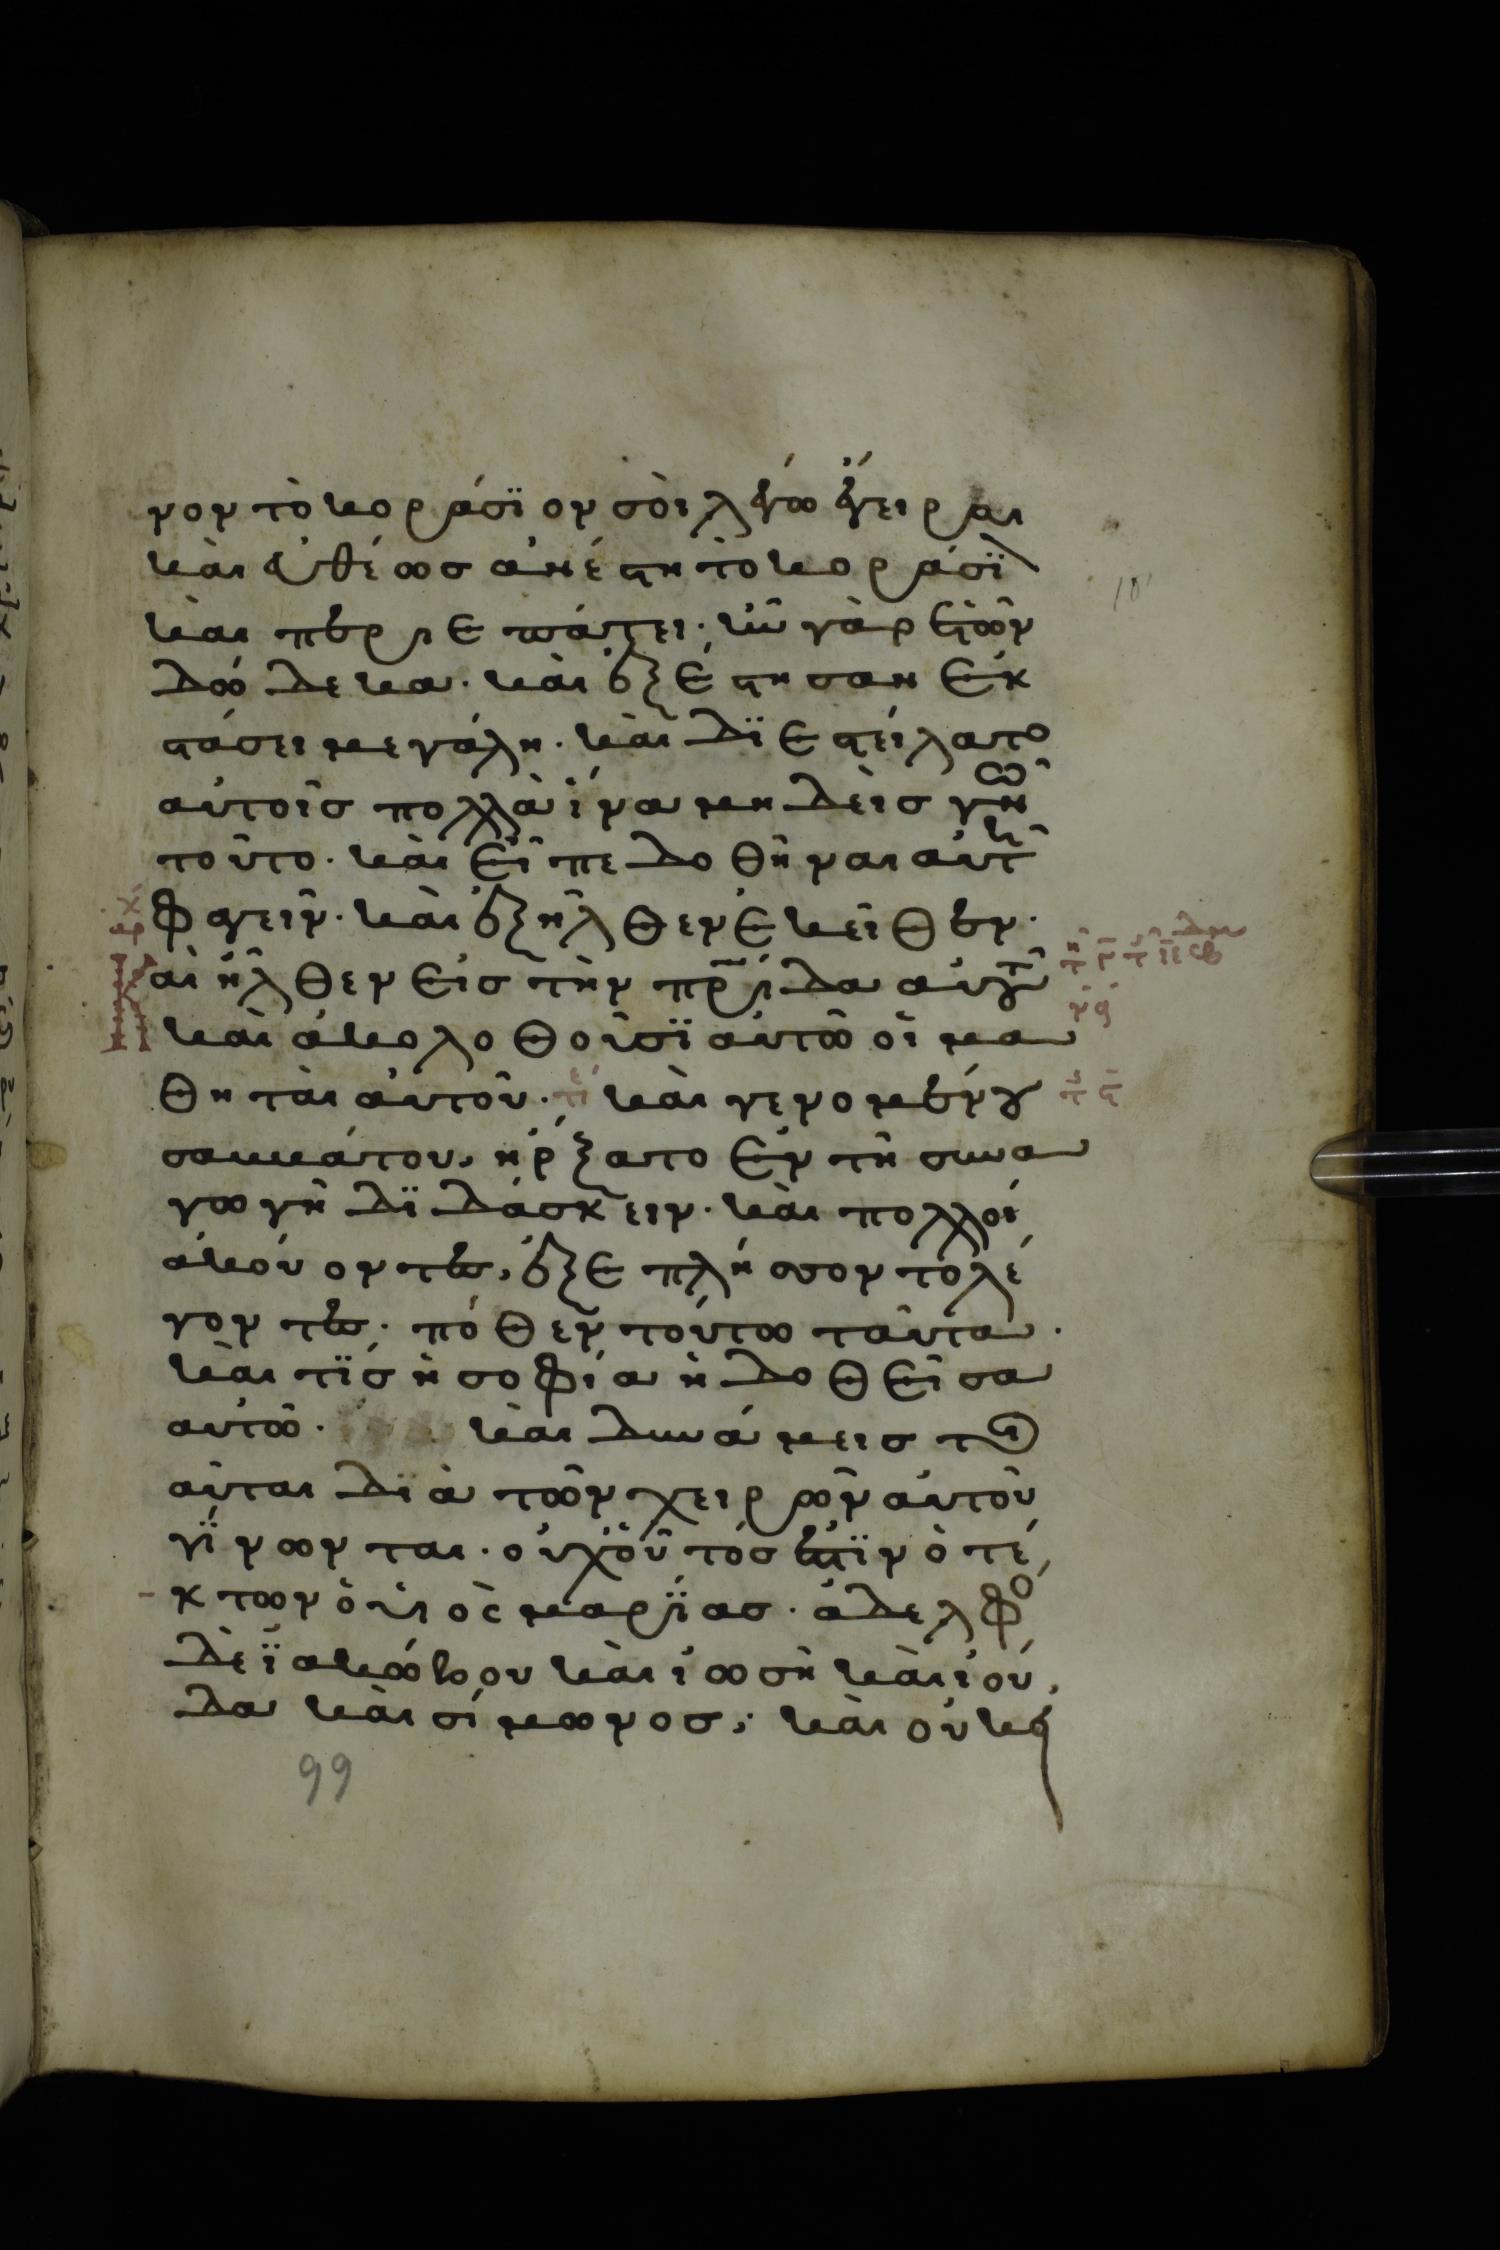 νον τὸ κοράσϊον σὸι λέγω ἔγειραι
καὶ ἐυθέως ἀνέστη τὸ κοράσϊ
καὶ περιεπάτει· ἦν γὰρ ἐτῶν
δώδεκα· καὶ ἐξέστησαν ἐκ
στάσει μεγάλη· καὶ δϊεστείλατο
αὐτοῖσ πολλὰ ἵνα μηδεὶσ γνῶ
τοῦτο· καὶ εἶπε δοθῆναι αὐτῆ
φαγεῖν· καὶ ἐξῆλθεν ἐκεῖθεν·
Καὶ ἦλθεν εἰσ τὴν πρίδα αὐτοῦ
καὶ ἀκολοθοῦσϊ αὐτῶ οἱ μα
θηταὶ αὐτοῦ· καὶ γενομένου
σαββάτου, ἤρξατο ἐν τῆ συνα
γωγῆ δϊδάσκειν· καὶ πολλοὶ
ἀκούοντες, ἐξεπλήσσοντο λέ
γοντες· πόθεν τούτω ταῦτα·
καὶ τίσ ἡ σοφία ἡ δοθεῖσα
αὐτῶ· καὶ δυνάμεισ τοι
αῦται δϊὰ τῶν χειρῶν αὐτοῦ
γΐνωνται· οὐχ οὗτόσ ἐστϊν ὁ τέ
κτων ὁ υἱὸς μαρΐας· ἀδελφὸ
δὲ ϊακώβου καὶ ἰωσῆ καὶ ἰού
δα καὶ σίμωνοσ; καὶ οὐκ
99